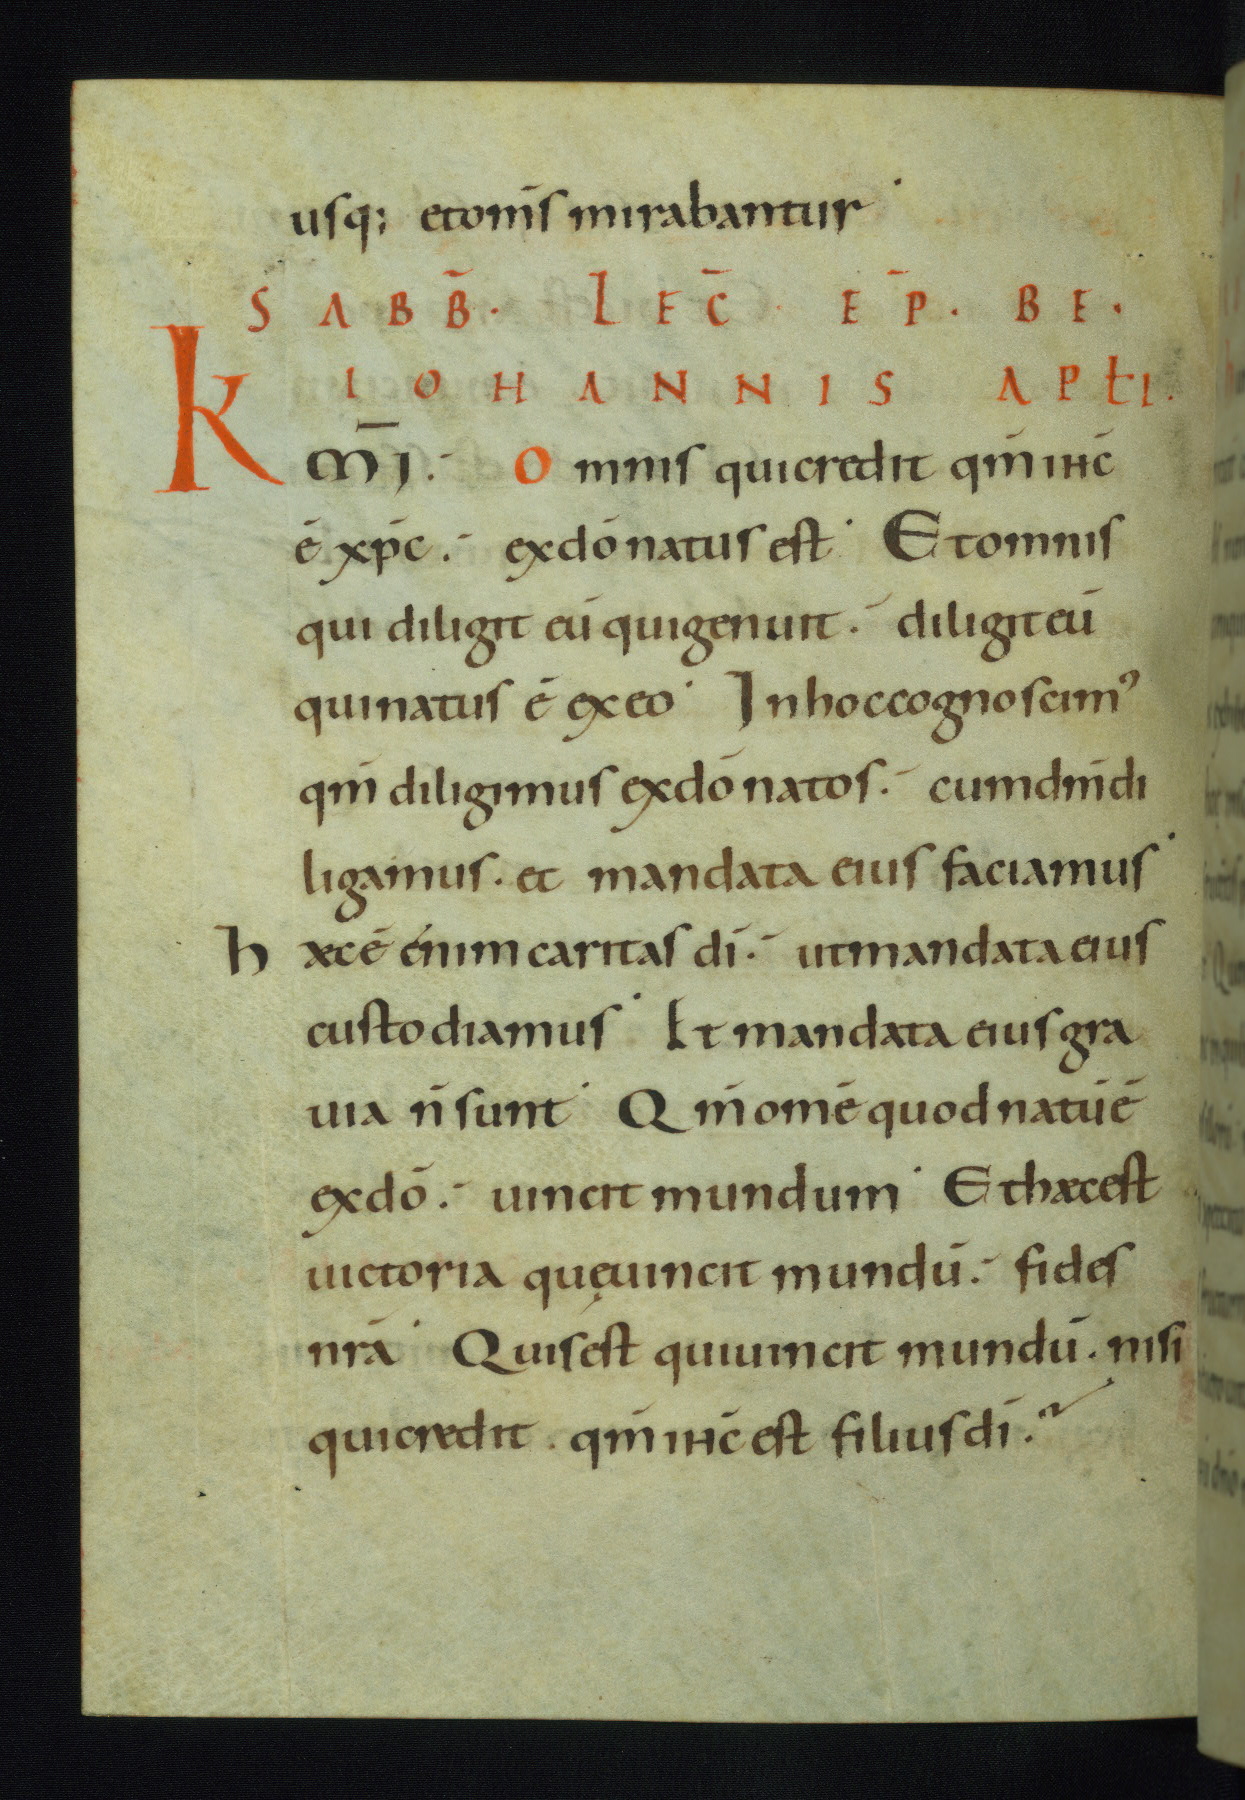 usq; et om̄s mirabantur
SABB̄. LEC̄. EP̄. BE.
IOHANNIS APŁI.
K m̄i. Omnis qui credit qm̄ ih̄c
ē xp̄c. ex dō natus est Et omnis
qui diligit eū qui genuit. diligit eū
qui natus ē ex eo In hoc cognoscim᾽
qm̄ diligimus ex dō natos. cum dm̄ di
ligamus. et mandata eius faciamus
hæc ē enim caritas dī. ut mandata eius
custodiamus Et mandata eius gra
uia n̄ sunt Qm̄ omē quod natū ē
ex dō. uincit mundum Et hæc est
uictoria quę uincit mundū. fides
nr̄a Quis est qui uincit mundū. nisi
qui credit. qm̄ ih̄c est filius dī.